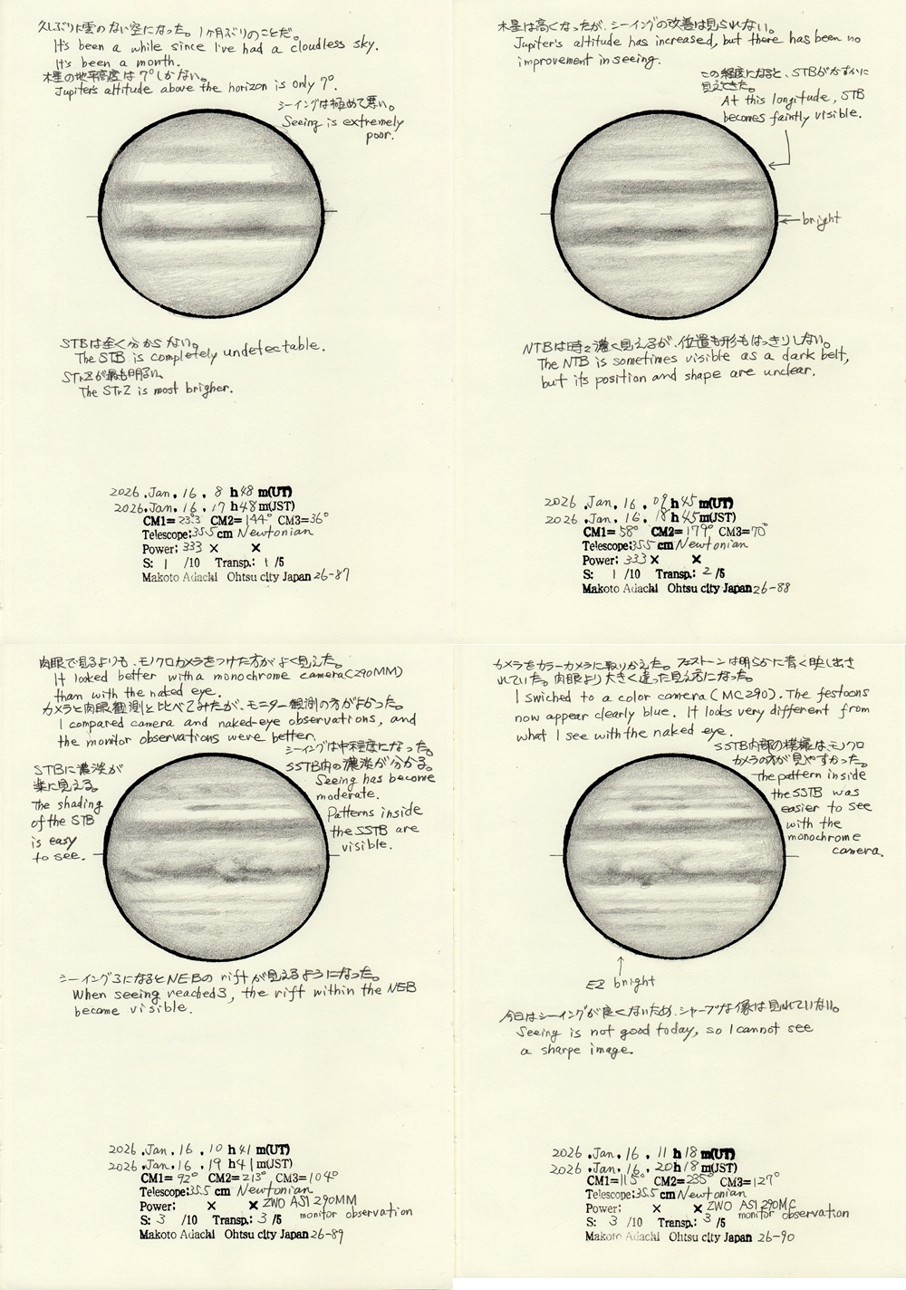 久しぶりに雲のない空になった。1ヶ月ぶりのことだ。
It's been a while since I've had a cloudless sky.
It's been a month.
木星の地平高度は7°しかない。
Jupiter's altitude above the horizon is only 7°.
シーイングは極めて悪い。
Seeing is extremely
poor.
STBは全く分からない。
The STB is completely undetectable.
STrZが最も明るい。
The STrZ is most brigher.
2026.Jan.16.8h48m(UT)
2026.Jan.16.17h48m(JST)
CM1=23.3 CM2=144° CM3=36°
Telescope:35.5cm Newtonian
Power: 333× ×
S: 1 /10 Transp.: 1 /5
Makoto Adachi Ohtsu city Japan 26-87
木星は高くなったが、シーイングの改善は見られない。
Jupiter's altitude has increased, but there has been no
improvement in seeing.
この経度になると、STBがかすかに
見えてきた。
At this longitude, STB
becomes faintly visible.
bright
NTBは時々濃く見えるが、位置も形もはっきりしない。
The NTB is sometimes visible as a dark belt,
but its position and shape are unclear.
2026.Jan.16.09h45m(UT)
2026.Jan.16.18h45m(JST)
CM1=58° CM2=179° CM3=70°
Telescope:35.5cm Newtonian
Power: 333× ×
S: 1 /10 Transp.: 2 /5
Makoto Adachi Ohtsu city Japan 26-88
肉眼で見るよりも、モノクロカメラをつけた方がよく見えた。
It looked better with a monochrome camera(290MM)
than with the naked eye.
カメラと肉眼観測と比べてみたが、モニター観測の方がよかった。
I compared camera and naked-eye observations, and
the monitor observations were better.
シーイングは中程度になった。
SSTB内の濃淡が分かる。
Seeing has become
moderate.
Patterns inside
the SSTB are
visible.
STBに濃淡が
楽に見える。
The shading
of the STB
is easy
to see.
シーイング3になるとNEBのriftが見えるようになった。
When seeing reached3, the rift within the NEB
became visible.
2026.Jan.16.10h41m(UT)
2026.Jan.16.19h41m(JST)
CM1=92° CM2=213° CM3=104°
Telescope:35.5cm Newtonian
Power: × × ZWO ASI290MM
monitor observation
S: 3 /10 Transp.: 3 /5
Makoto Adachi Ohtsu city Japan 26-89
カメラをカラーカメラに取りかえた。フェストーンは明らかに青く映し出さ
れていた。肉眼より大きく違った見え方になった。
I swiched to a color camera (MC290). The festoons
now appear clearly blue. It looks very different from
what I see with the naked eye.
SSTB内部の模様はモノクロ
カメラの方が見やすかった。
The pattern inside
the SSTB was
easier to see
with the
monochrome
camera.
EZ bright
今日はシーイングが良くないため、シャープな像は見れていない。
Seeing is not good today, so I cannot see
a sharpe image.
2026.Jan.16.11h18m(UT)
2026.Jan.16.20h18m(JST)
CM1=115° CM2=235° CM3=127°
Telescope:35.5cm Newtonian
Power: × × ZWO ASI290MC
monitor observation
S: 3 /10 Transp.: 3 /5
Makoto Adachi Ohtsu city Japan 26-90